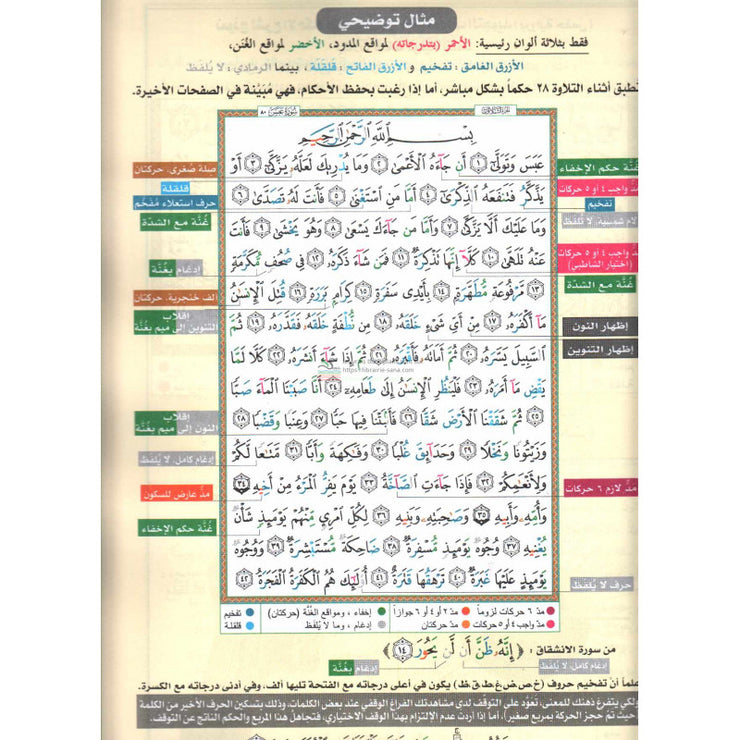 مثال توضيحي
فقط بثلاثة ألوان رئيسية: الأحمر (بتدرجاته) لمواقع المدود، الأخضر لمواقع الغُنَن،
الأزرق الغامق: تفخيم و الأزرق الفاتح: قلقلة، بينما الرمادي: لا يُلفَظ
تطبق أثناء التلاوة ٢٨ حكماً بشكل مباشر، أما إذا رغبت بحفظ الأحكام، فهي مُبَيَّنة في الصفحات الأخيرة.
سُورَةُ عَبَسَ ٨٠
بِسْمِ اللَّهِ الرَّحْمَٰنِ الرَّحِيمِ
عَبَسَ وَتَوَلَّىٰٓ ١ أَن جَآءَهُ الْأَعْمَىٰ ٢ وَمَا يُدْرِيكَ لَعَلَّهُۥ يَزَّكَّىٰٓ ٣ أَوْ
يَذَّكَّرُ فَتَنفَعَهُ الذِّكْرَىٰٓ ٤ أَمَّا مَنِ اسْتَغْنَىٰ ٥ فَأَنتَ لَهُۥ تَصَدَّىٰ ٦
وَمَا عَلَيْكَ أَلَّا يَزَّكَّىٰ ٧ وَأَمَّا مَن جَآءَكَ يَسْعَىٰ ٨ وَهُوَ يَخْشَىٰ ٩ فَأَنتَ
عَنْهُ تَلَهَّىٰ ١٠ كَلَّآ إِنَّهَا تَذْكِرَةٌ ١١ فَمَن شَآءَ ذَكَرَهُۥ ١٢ فِي صُحُفٍ مُّكَرَّمَةٍ
١٣ مَّرْفُوعَةٍ مُّطَهَّرَةٍۭ ١٤ بِأَيْدِي سَفَرَةٍ ١٥ كِرَامٍۭ بَرَرَةٍ ١٦ قُتِلَ الْإِنسَٰنُ
مَآ أَكْفَرَهُۥ ١٧ مِنْ أَيِّ شَيْءٍ خَلَقَهُۥ ١٨ مِن نُّطْفَةٍ خَلَقَهُۥ فَقَدَّرَهُۥ ١٩ ثُمَّ
السَّبِيلَ يَسَّرَهُۥ ٢٠ ثُمَّ أَمَاتَهُۥ فَأَقْبَرَهُۥ ٢١ ثُمَّ إِذَا شَآءَ أَنشَرَهُۥ ٢٢ كَلَّا لَمَّا
https://librairie-sana.com
يَقْضِ مَآ أَمَرَهُۥ ٢٣ فَلْيَنظُرِ الْإِنسَٰنُ إِلَىٰ طَعَامِهِۦٓ ٢٤ أَنَّا صَبَبْنَا الْمَآءَ صَبًّا
٢٥ ثُمَّ شَقَقْنَا الْأَرْضَ شَقًّا ٢٦ فَأَنۢبَتْنَا فِيهَا حَبًّا ٢٧ وَعِنَبًا وَقَضْبًا ٢٨
وَزَيْتُونًا وَنَخْلًا ٢٩ وَحَدَآئِقَ غُلْبًا ٣٠ وَفَٰكِهَةً وَأَبًّا ٣١ مَّتَٰعًا لَّكُمْ
وَلِأَنْعَٰمِكُمْ ٣٢ فَإِذَا جَآءَتِ الصَّآخَّةُ ٣٣ يَوْمَ يَفِرُّ الْمَرْءُ مِنْ أَخِيهِ ٣٤
وَأُمِّهِۦ وَأَبِيهِ ٣٥ وَصَٰحِبَتِهِۦ وَبَنِيهِ ٣٦ لِكُلِّ امْرِئٍ مِّنْهُمْ يَوْمَئِذٍ شَأْنٌ
يُغْنِيهِ ٣٧ وُجُوهٌ يَوْمَئِذٍ مُّسْفِرَةٌ ٣٨ ضَاحِكَةٌ مُّسْتَبْشِرَةٌ ٣٩ وَوُجُوهٌ
يَوْمَئِذٍ عَلَيْهَا غَبَرَةٌ ٤٠ تَرْهَقُهَا قَتَرَةٌ ٤١ أُو۟لَٰٓئِكَ هُمُ الْكَفَرَةُ الْفَجَرَةُ ٤٢
غُنَّة حكم الإخفاء
مدّ واجب ٤ أو ٥ حركات
تفخيم
لام شمسية: لا تُلفَظ
مدّ واجب ٤ أو ٥ حركات
(اختيار الشاطبي)
غُنَّة مع الشدّة
إظهار النون
إظهار التنوين
مدّ لازم ٦ حركات
حرف لا يُلفَظ
صلة صُغرى، حركتان
قلقلة
حرف استعلاء مُفَخَّم
غُنَّة مع الشدّة
إدغام بغُنَّة
ألف خنجرية، حركتان
إقلاب
التنوين إلى ميم بغُنَّة
إقلاب
النون إلى ميم بغُنَّة
إدغام كامل، لا يُلفَظ
مدّ عارض للسكون
غُنَّة حكم الإخفاء
مدّ ٦ حركات لزوماً مدّ ٢ أو ٤ أو ٦ جوازاً إخفاء، ومواقع الغُنَّة (حركتان) تفخيم
مدّ واجب ٤ أو ٥ حركات مدّ حركتان إدغام، وما لا يُلفَظ قلقلة
من سورة الانشقاق: ﴿ إِنَّهُۥ ظَنَّ أَن لَّن يَحُورَ ١٤ ﴾
إدغام كامل، لا يُلفَظ
إدغام بغُنَّة
علماً أنّ تفخيم حروف (خ،ص،ض،غ،ط،ق،ظ) يكون في أعلى درجاته مع الفتحة تليها ألف، وفي أدنى درجاته مع الكسرة.
ولكي يتفرغ ذهنك للمعنى، تعوّد على التوقف لدى مشاهدتك الفراغ الوقفي عند بعض الكلمات، وذلك بتسكين الحرف الأخير من الكلمة
(حيث تم حجز الحركة بمربع صغير)، أما إذا أردت عدم الالتزام بهذا الوقف الاختياري، فتجاهل هذا المربع والحكم الناتج عن التوقف.